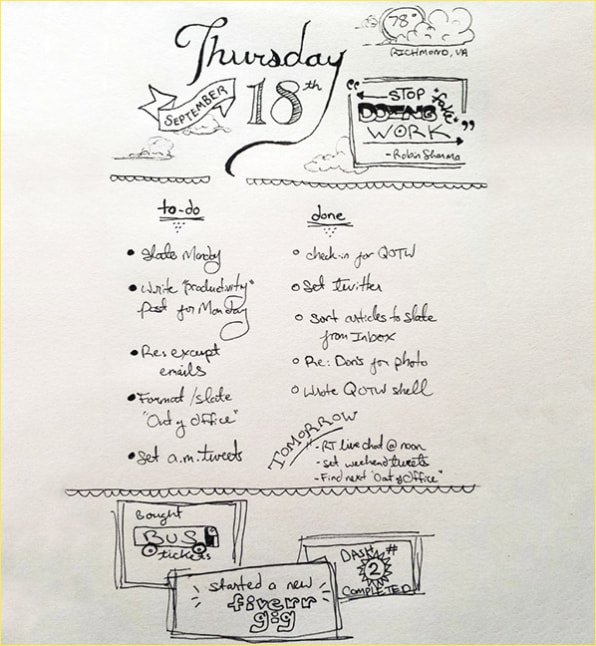 78°
RICHMOND, VA
Thursday
SEPTEMBER
18th
"← STOP
DOING fake
WORK"
-Robin Sharma
to-do
• Slate Monday
• Write "productivity"
Post for Monday
emails
• Format/slate
"Out of Office"
• Set a.m. tweets
done
○ check-in for QOTW
○ Set twitter
○ Sort articles to slate
from Inbox
○ Re: for photo
○ Wrote QOTW shell
TOMORROW
- RT live chat @ noon
- set weekend tweets
- Find next "Out of Office"
Bought
BUS
tickets
started a new
fiverr
gig
DASH #
2
COMPLETED